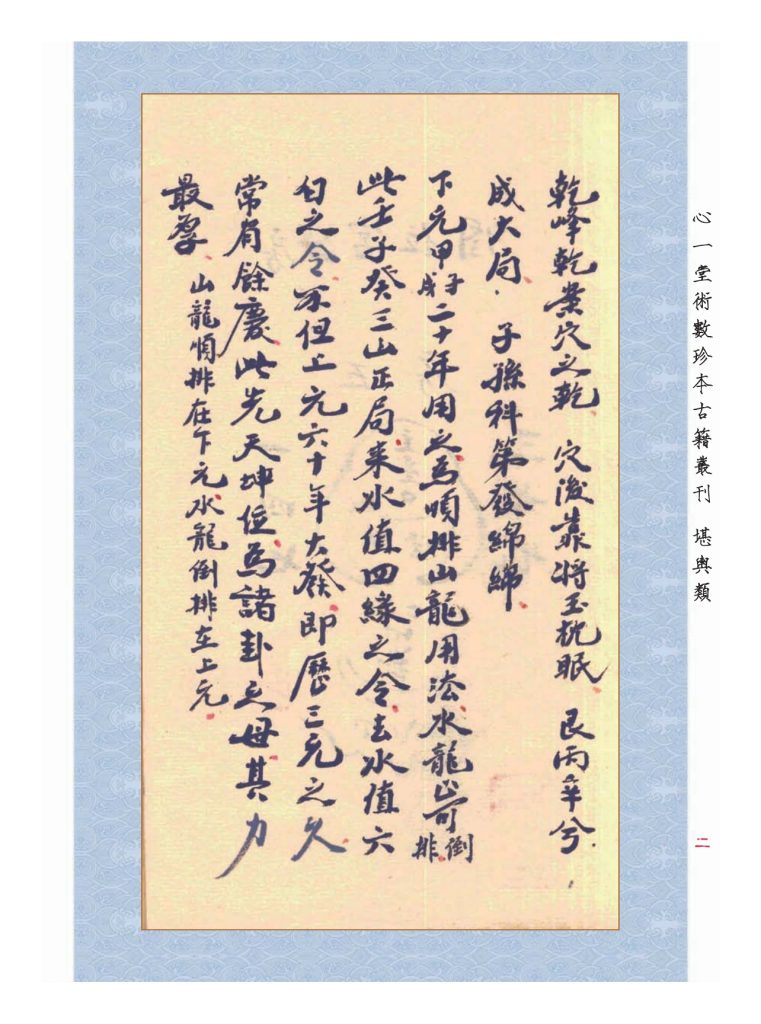 乾峰乾業穴之乾 穴後靠將玉枕眠 艮丙辛兮
成大局 子孫科第發綿綿
下元甲子戌二十年用之為順排山龍用法水龍出可倒排
此壬子癸三山正局來水值四綠之令去水值六
白之令不但上元六十年大發即歷三元之久
常有餘慶此先天坤位為諸卦之母其力
最厚 山龍順排在下元水龍倒排在上元
心一堂術數珍本古籍叢刊 堪輿類
二